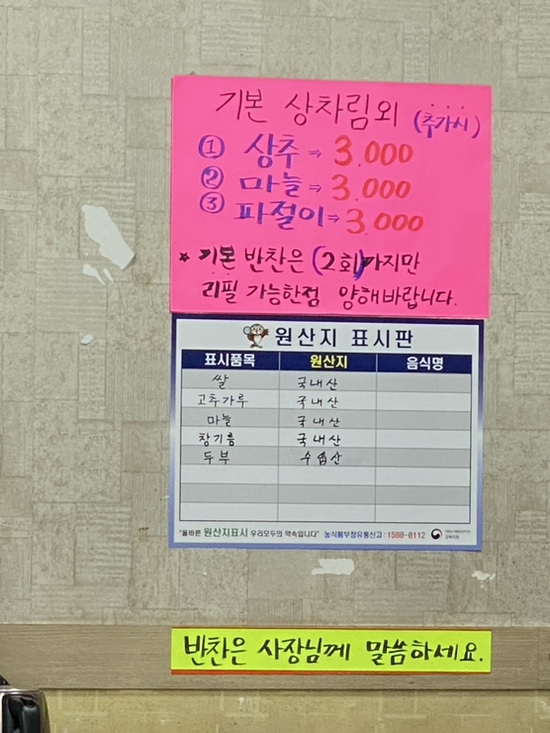 기본 상차림외 (추가시)
① 상추 ⇒ 3.000
② 마늘 ⇒ 3.000
③ 파절이 ⇒ 3.000
* 기본 반찬은 (2회)까지만
리필 가능한점 양해바랍니다.
원산지 표시판
표시품목 원산지 음식명
쌀 국내산
고추가루 국내산
마늘 국내산
참기름 국내산
두부 수입산
"올바른 원산지표시 우리모두의 약속입니다" 농식품부정유통신고 : 1588-8112
반찬은 사장님께 말씀하세요.